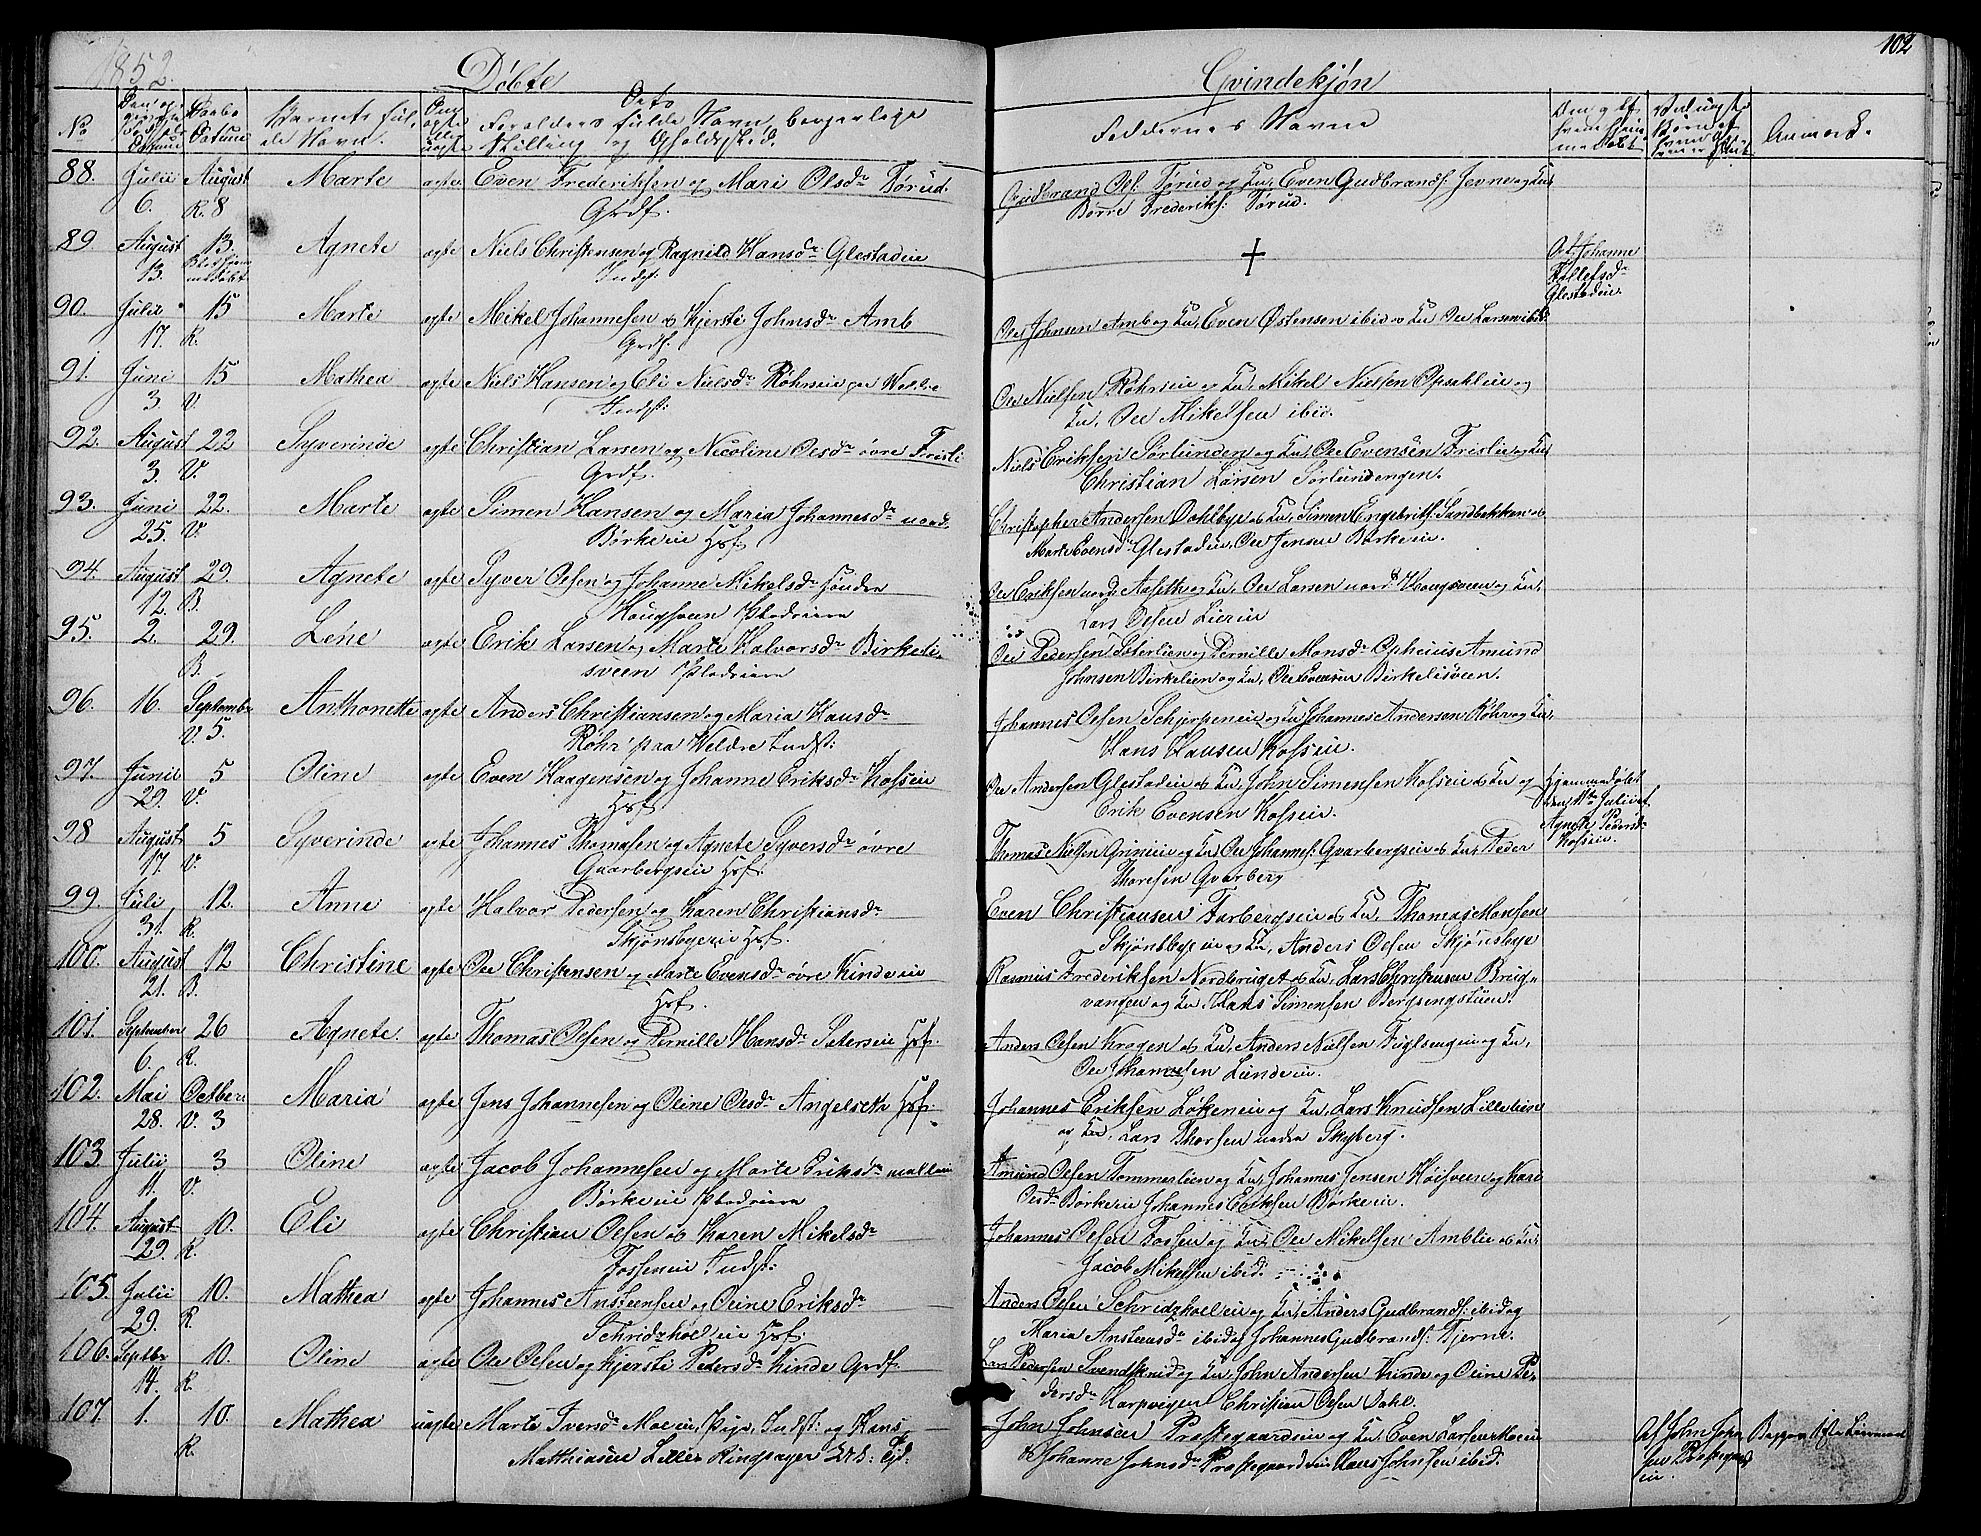 1852.
Döbte
Qvindekjön
102
No
Daabs
Datum
Barnets ful-
de Navn.
Forældres fulde Navn, borgerlige
Stilling og Opholdssted.
Faddernes Navne
Anmærk.
88. Julii August Marte ægte Even Frederiksen og Mari Olsdr Törud.
6. R. 8 Grdf.
Gudbrand Ols. Törud og Ku, Even Gudbrands. Jevne og Ku
Börre Frederiks. Törud.
89 August 13. Agnete ægte Niels Christensen og Ragnild Hansdr Glestadeie
13. Blot hjem-
medöbt Indst.
+
Af Johanne
Glestadeie.
90. Julii 15 Marte ægte Mikel Johannesen og Kjersti Johnsdr Amb
17. R. Grdf.
Ole Johnsen Amb og Ku, Even Östensen ibid og Ku Ole Larsen ibid
91. Juni 15 Mathea ægte Niels Hansen og Eli Nielsdr Röhrseie paa Weldre
3. V. Indst:
Ole Nielsen Röhrseie og Ku, Mikel Nielsen Opsahleie og
Ku, Ole Mikelsen ibid.
92. August 22 Syverinde ægte Christian Larsen og Nicoline Olsdr övre Fristi
3. V. Grdf.
Niels Eriksen Sörlunden og Ku, Ole Evensen Frislie og Ku
Christian Larsen Sörlundengen.
93. Juni 22. Marte ægte Simen Hansen og Maria Johannesdr nord
25. V. Börkeeie Hsf.
Christopher Andersen Dahlbye og Ku, Simen Engebrits. Sandbakken og
Marte Evensdr Glestadeie, Ole Jensen Börkeeie.
94. August 29. Agnete ægte Syver Olsen og Johanne Mikelsdr söndre
12. B. Haugsveen Pladseiere
Ole Eriksen nord Aaseth og Ku, Ole Larsen nord Haugsveen og Ku,
Lars Olsen Lierie
95. 2. 29. Lene ægte Erik Larsen og Marte Halvorsdr Birkeli-
B. sveen Pladseiere
Ole Pedersen Sæterlien og Pernille Monsdr Opheim Amund
Johnsen Birkelien og Ku, Ole Evensen Birkelisveen.
96. 16. Septembr Anthonette ægte Anders Christiansen og Maria Hansdr
V. 5. Röhr paa Weldre Indst:
Johannes Olsen Schjerpeneie og Ku, Johannes Andersen Röhr og Ku,
Hans Hansen Hofseie.
97. Junii 5 Oline ægte Even Haagensen og Johanne Eriksdr Hofseie
29. V. Hsf.
Ole Andersen Glestadeie og Ku, John Simensen Hofseie og Ku og
Erik Evensen Hofseie.
Hjemmedöbt
den 11te Julii af
Agnete Pedersdr
Hofseie.
98 August 5 Syverinde ægte Johannes Thomasen og Agnete Syversdr övre
17. V. Qvarbergseie Hsf.
Thomas Nielsen Grineeie og Ku, Ole Johannes. Qvarbergseie og Ku, Peder
Thoresen Qvarberg
99. Juli 12. Anne ægte Halvor Pedersen og Karen Christiansdr
31. R. Skjönsbyeie Hsf.
Even Christiansen Farbergseie og Ku, Thomas Hansen
Skjönsbyeie og Ku, Anders Olsen Skjönsbye
100. August 12 Christine ægte Ole Christensen og Marte Evensdr övre Kindeeie
21. B. Hsf.
Rasmus Frederiksen Nordbruget og Ku, Lars Christensen Brug-
vangen og Ku, Hans Simensen Bergsengstuen.
101. September 26 Agnete. ægte Thomas Olsen og Pernille Hansdr Sæterseie Hsf.
6. R.
Anders Olsen Kragen og Ku, Anders Nielsen Fuglsengeie og Ku,
Ole Johannesen Lundeeie.
102. Mai Octbr Maria ægte Jens Johannesen og Oline Olsdr Angelseth Hsf.
28. V. 3
Johannes Eriksen Lökeneie og Ku, Lars Knudsen Lillelien
og Ku, Lars Thorsen nedre Skyberg.
103. Julii 3 Oline ægte Jacob Johannesen og Marte Eriksdr mellem
11. V. Börkeeie Pladseiere
Amund Olsen Tommerlien og Ku, Johannes Jensen Höisveen og Kari
Olsdr Börkeeie Johannes Eriksen Börkeeie.
104. August 10. Eli ægte Christian Olsen og Karen Mikelsdr
29. R. Fosseneie Indst:
Johannes Olsen Fossen og Ku, Ole Mikelsen Amblie og Ku,
Jacob Mikelsen ibid.
105. Julii 10. Mathea ægte Johannes Anstensen og Oline Eriksdr
29. R. Schridzholeie Hsf.
Anders Olsen Schridzholeie og Ku, Anders Gudbrands: ibid og
Maria Anstensdr ibid og Johannes Gudbrands. Tjerne.
106. Septbr 10. Oline ægte Ole Olsen og Kjersti Pedersdr Kinde Grdf.
14. R.
Lars Pedersen Svendsrud og Ku, John Andersen Kinde og Oline Pe-
dersdr Harpvigen Christian Olsen Dahl.
107. 1. 10. Mathea uægte Marte Iversdr Moeie, Pige, Indst: og Hans
R. Matthiasen Lille Ringsager
John Johnsen Præstegaardseie og Ku, Even Larsen Moeie
og Johanne Johnsdr Præstegaardseie Hans Johnsen ibid.
Af John John
sen Præstegaards
eie.